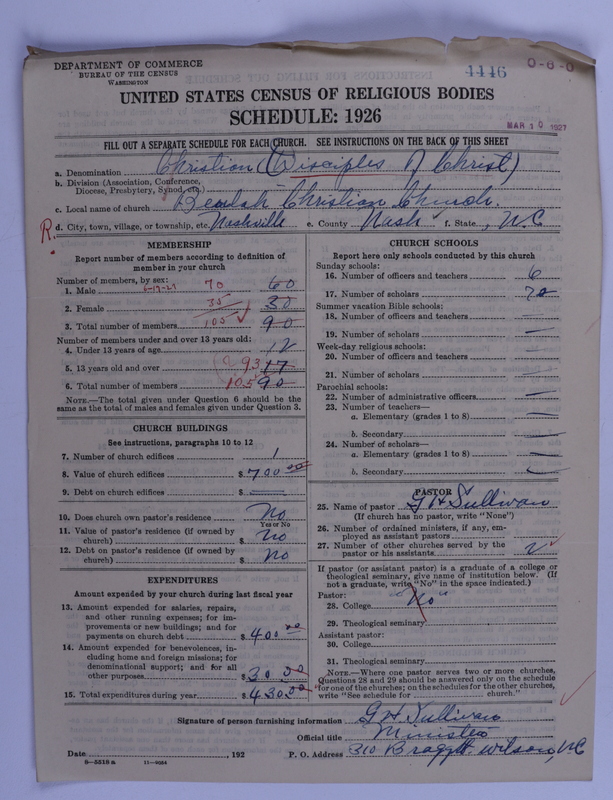 DEPARTMENT OF COMMERCE
BUREAU OF THE CENSUS
WASHINGTON
4446
0-6-0
UNITED STATES CENSUS OF RELIGIOUS BODIES
SCHEDULE: 1926
MAR 10 1927
FILL OUT A SEPARATE SCHEDULE FOR EACH CHURCH. SEE INSTRUCTIONS ON THE BACK OF THIS SHEET
a. Denomination Christion (Disciples of Christ)
b. Division (Association, Conference,
Diocese, Presbytery, Synod, etc.)
c. Local name of church Beulah Christian Church.
R. d. City, town, village, or township, etc. Nashville e. County Nash f. State N.C
MEMBERSHIP
Report number of members according to definition of
member in your church
Number of members, by sex:
1. Male 70 60
2. Female 35 30
3. Total number of members 105 90
Number of members under and over 13 years old:
4. Under 13 years of age 12
5. 13 years old and over 93 17
6. Total number of members 105 90
NOTE.—The total given under Question 6 should be
same as the total of males and females given under Question 3.
CHURCH BUILDINGS
See instructions, paragraphs 10 to 12
7. Number of church edifices 1
8. Value of church edifices $ 700 00
9. Debt on church edifices $ —
10. Does church own pastor's residence No
Yes or No
11. Value of pastor's residence (if owned by
church) $ No
12. Debt on pastor's residence (if owned by
church) $ No
EXPENDITURES
Amount expended by your church during last fiscal year
13. Amount expended for salaries, repairs,
and other running expenses; for im-
provements or new buildings; and for
payments on church debt $ 400 00
14. Amount expended for benevolences, in-
cluding home and foreign missions; for
denominational support; and for all
other purposes $ 30 00
15. Total expenditures during year $ 430 00
CHURCH SCHOOLS
Report here only schools conducted by this church
Sunday schools:
16. Number of officers and teachers 6
17. Number of scholars 70
Summer vacation Bible schools:
18. Number of officers and teachers —
19. Number of scholars —
Week-day religious schools:
20. Number of officers and teachers —
21. Number of scholars —
Parochial schools:
22. Number of administrative officers —
23. Number of teachers—
a. Elementary (grades 1 to 8) —
b. Secondary —
24. Number of scholars—
a. Elementary (grades 1 to 8) —
b. Secondary —
PASTOR
25. Name of pastor G H Sullivan
(If church has no pastor, write "None")
26. Number of ordained ministers, if any, em-
ployed as assistant pastors
27. Number of other churches served by the
pastor or his assistants
If pastor (or assistant pastor) is a graduate of a college or
theological seminary, give name of institution below. (If
not a graduate, write "No" in the space indicated.)
Pastor: "No"
28. College
29. Theological seminary
Assistant pastor:
30. College
31. Theological seminary
NOTE.—Where one pastor serves two or more churches,
Questions 28 and 29 should be answered only on the schedule
for one of the churches; on the schedules for the other churches,
write "See schedule for church."
Signature of person furnishing information G H Sullivan
Official title Minister
Date , 192 P. O. Address 310 Bragg St. Wilson, NC
8—5518 a 11—9034